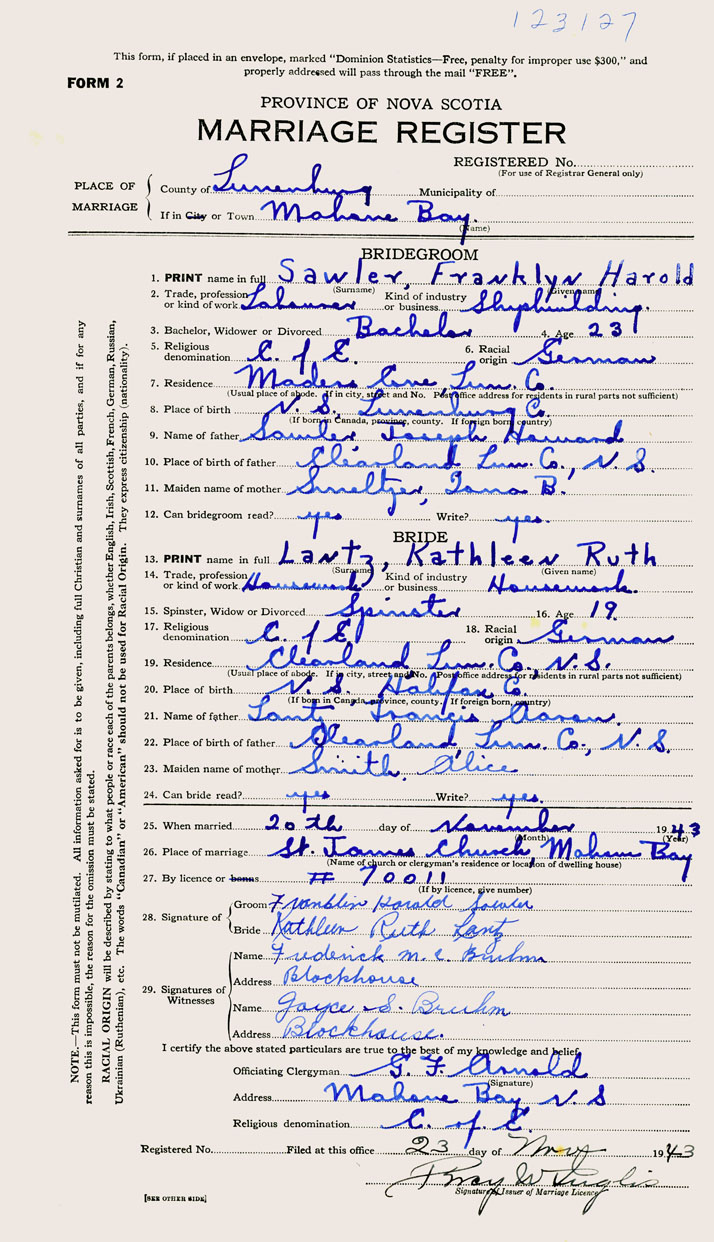 123127
This form, if placed in an envelope, marked "Dominion Statistics—Free, penalty for improper use $300," and
properly addressed will pass through the mail "FREE".
FORM 2
PROVINCE OF NOVA SCOTIA
MARRIAGE REGISTER
REGISTERED No.
(For use of Registrar General only)
PLACE OF MARRIAGE
County of Lunenburg Municipality of
If in City or Town Mahone Bay.
(Name)
BRIDEGROOM
1. PRINT name in full Sawler, Franklyn Harold
(Surname) (Given name)
2. Trade, profession or kind of work Labourer Kind of industry or business Shipbuilding.
3. Bachelor, Widower or Divorced Bachelor 4. Age 23
5. Religious denomination C. of E. 6. Racial origin German
7. Residence Maders Cove, Lun. Co.
(Usual place of abode. If in city, street and No. Post office address for residents in rural parts not sufficient)
8. Place of birth N. S. Lunenburg Co.
(If born in Canada, province, county. If foreign born, country)
9. Name of father Sawler Joseph Howard
10. Place of birth of father Clearland Lun. Co., N. S.
11. Maiden name of mother Smeltzer, B.
12. Can bridegroom read? yes Write? yes.
BRIDE
13. PRINT name in full Lantz, Kathleen Ruth
(Surname) (Given name)
14. Trade, profession or kind of work Housework Kind of industry or business Housework.
15. Spinster, Widow or Divorced Spinster 16. Age 19.
17. Religious denomination C. of E. 18. Racial origin German
19. Residence Clearland Lun. Co., N. S.
(Usual place of abode. If in city, street and No. Post office address for residents in rural parts not sufficient)
20. Place of birth N. S. Halifax Co.
(If born in Canada, province, county. If foreign born, country)
21. Name of father Lantz Francis Aaron.
22. Place of birth of father Clearland, Lun. Co., N. S.
23. Maiden name of mother Smith, Alice
24. Can bride read? yes Write? yes.
25. When married 20th day of November 1943
(Month) (Year)
26. Place of marriage St. James Church, Mahone Bay
(Name of church or clergyman's residence or location of dwelling house)
27. By licence or banns # 70011
(If by licence, give number)
28. Signature of
Groom Franklin Harold Sawler
Bride Kathleen Ruth Lantz
29. Signatures of Witnesses
Name Frederick M. C. Bruhm
Address Blockhouse
Name Joyce S. Bruhm
Address Blockhouse.
I certify the above stated particulars are true to the best of my knowledge and belief,
Officiating Clergyman G. F. Arnold
(Signature)
Address Mahone Bay N. S
Religious denomination C. of E.
Registered No. Filed at this office 23 day of Nov 1943
Signature of Issuer of Marriage Licence
[SEE OTHER SIDE]
NOTE.—This form must not be mutilated. All information asked for is to be given, including full Christian and surnames of all parties, and if for any
reason this is impossible, the reason for the omission must be stated.
RACIAL ORIGIN will be described by stating to what people or race each of the parents belongs, whether English, Irish, Scottish, French, German, Russian,
Ukrainian (Ruthenian), etc. The words "Canadian" or "American" should not be used for Racial Origin. They express citizenship (nationality).